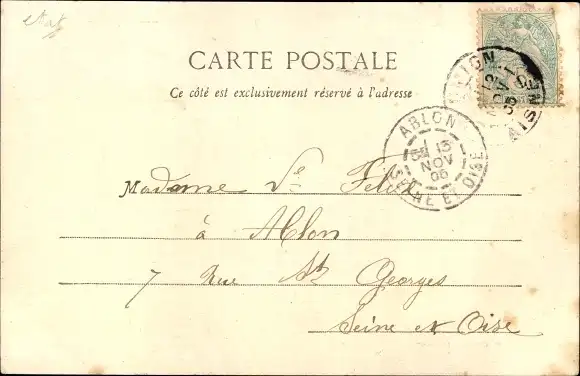 CARTE POSTALE
Ce côté est exclusivement réservé à l'adresse
LAON
12
NOV
05
AISNE
ABLON
13
NOV
06
SEINE ET OISE
Madame Ve Félix
à Ablon
7 Rue St Georges
Seine et Oise